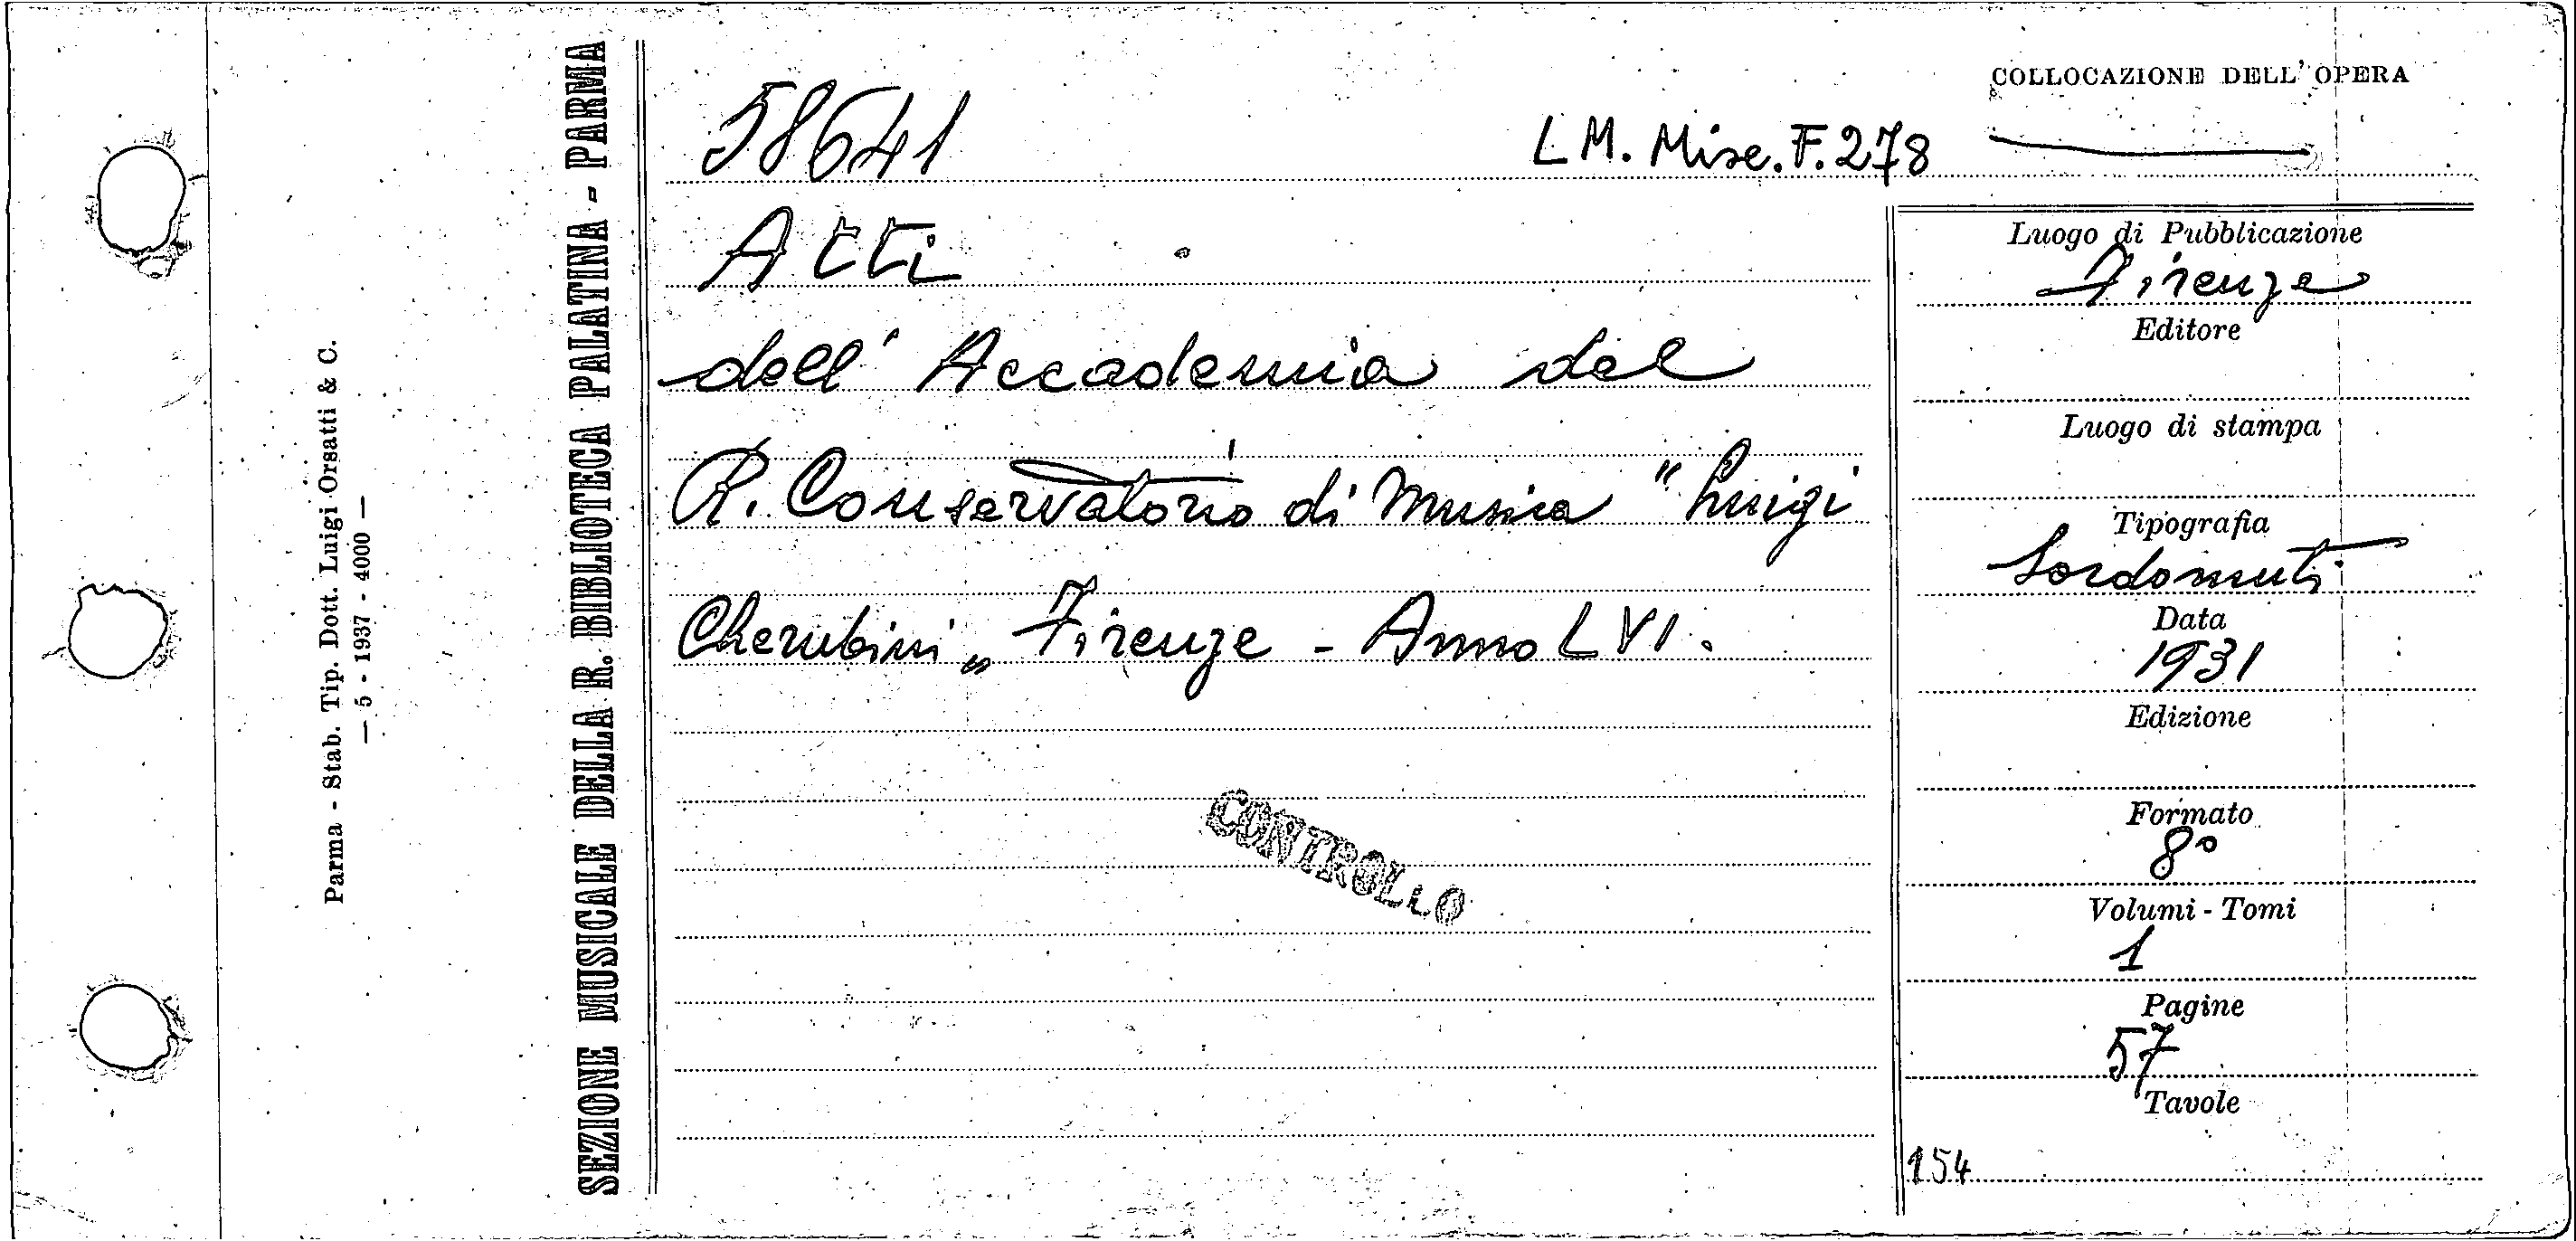 Parma - Stab. Tip. Dott. Luigi Orsatti & C.
— 5 - 1937 - 4000 —
SEZIONE MUSICALE DELLA R. BIBLIOTECA PALATINA - PARMA
COLLOCAZIONE DELL' OPERA
58641
LM. Misc. F. 278
Atti
dell' Accademia del
R. Conservatorio di Musica "Luigi
Cherubini„ Firenze - Anno LVI.
CONTROLLO
Luogo di Pubblicazione
Firenze
Editore
Luogo di stampa
Tipografia
Sordomuti
Data
1931
Edizione
Formato
8°
Volumi - Tomi
1
Pagine
57
Tavole
154